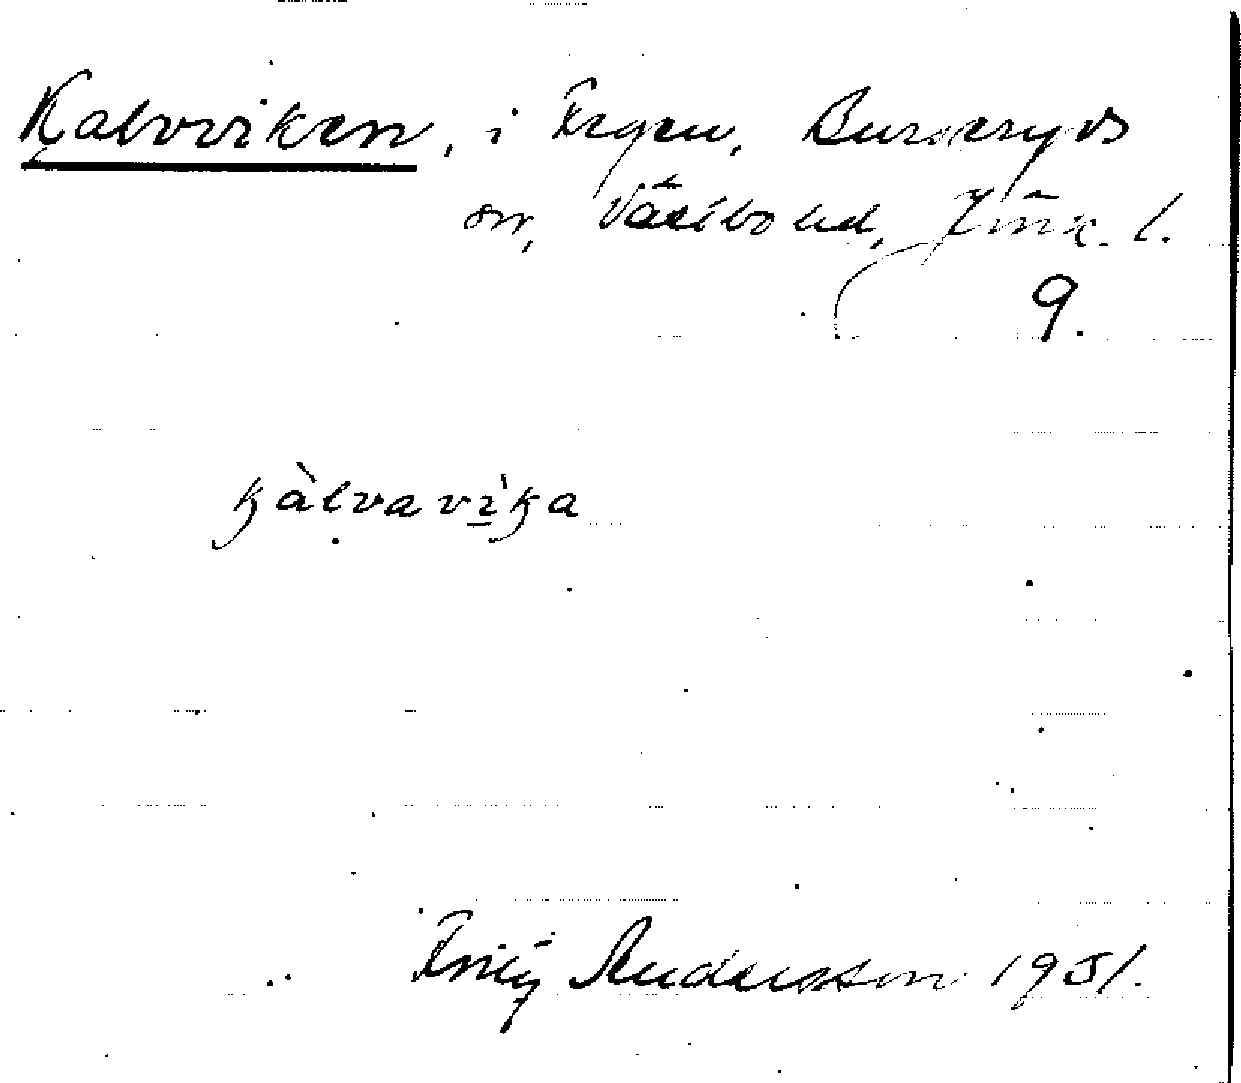 Kalvviken, i Fegen, Burseryds
sn, Västbo hd, Jönk. l.
9.
kàlvavìka
Fritz Andersson 1931.